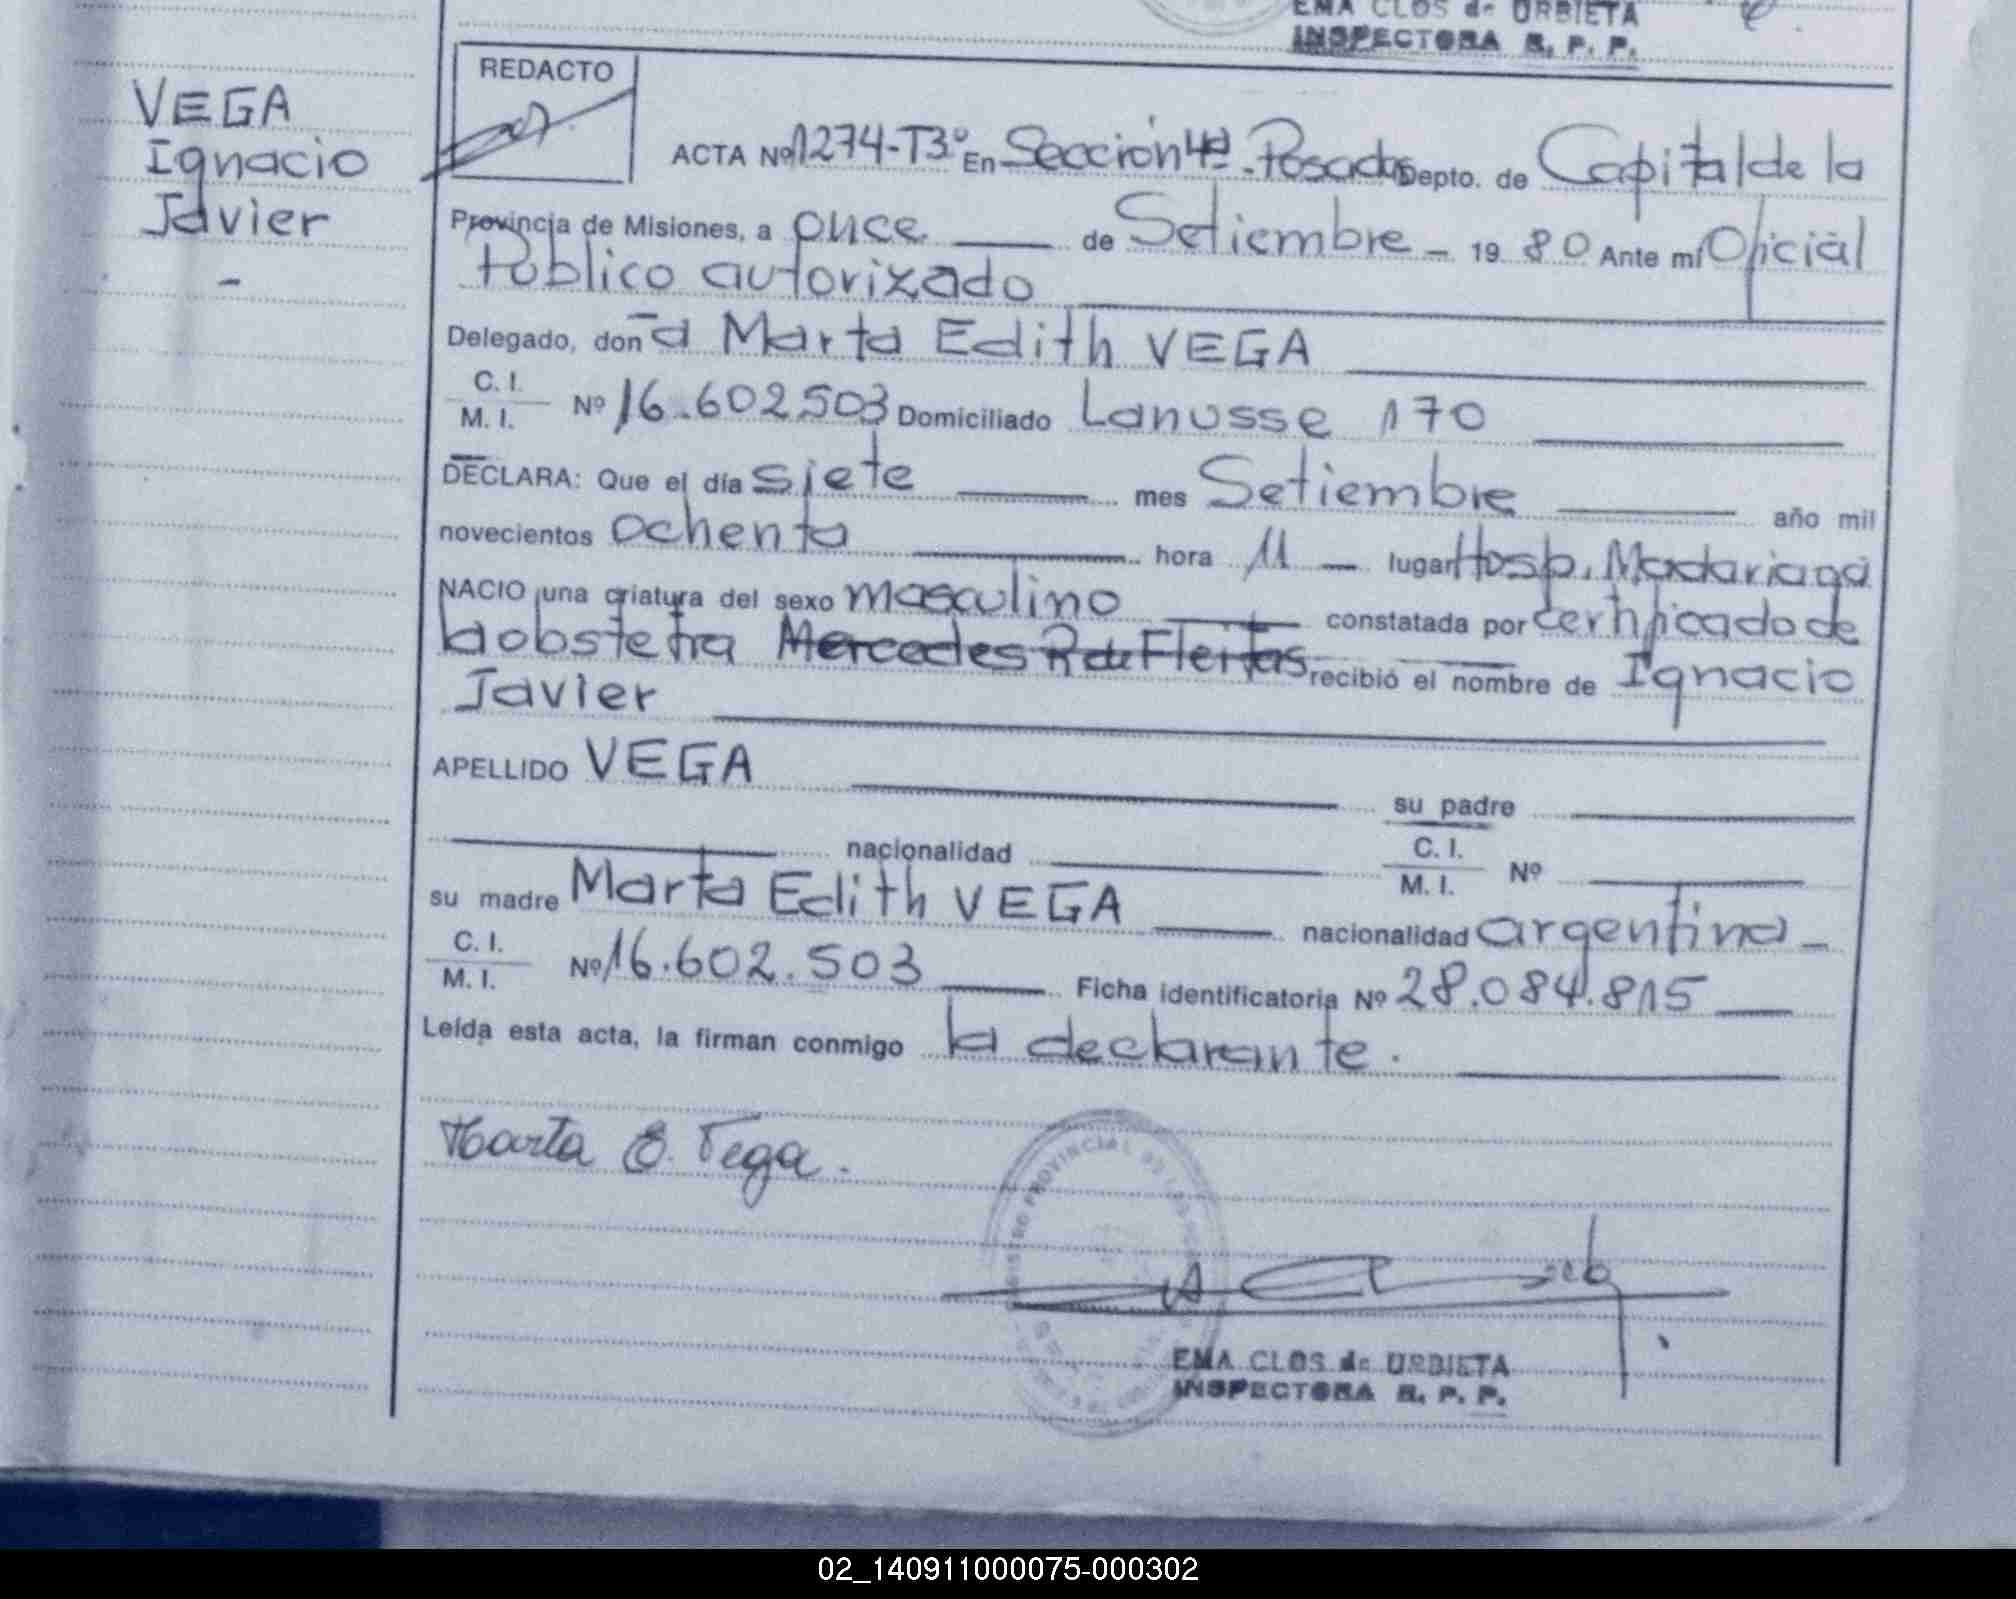 EMA CLOS de URBIETA
INSPECTORA R. P. P.
VEGA
Ignacio
Javier
-
REDACTO
ACTA Nº 1274-T3º En Sección 4ª - Posadas Depto. de Capital de la
Provincia de Misiones, a once de Setiembre - 1980 Ante mí Oficial
Público autorizado
Delegado, don a Marta Edith VEGA
C. I.
M. I. Nº 16.602503 Domiciliado Lanusse 170
DECLARA: Que el día siete mes Setiembre año mil
novecientos ochenta hora 11 - lugar Hosp. Madariaga
NACIO una criatura del sexo masculino constatada por certificado de
la obstetra Mercedes R de Fleitas recibió el nombre de Ignacio
Javier
APELLIDO VEGA su padre
nacionalidad C. I.
M. I. Nº
su madre Marta Edith VEGA nacionalidad argentina -
C. I.
M. I. Nº 16.602.503 Ficha identificatoria Nº 28.084.815
Leída esta acta, la firman conmigo la declarante.
Marta E. Vega.
PROVINCIAL DE LAS
EMA CLOS de URBIETA
INSPECTORA R. P. P.
02_140911000075-000302